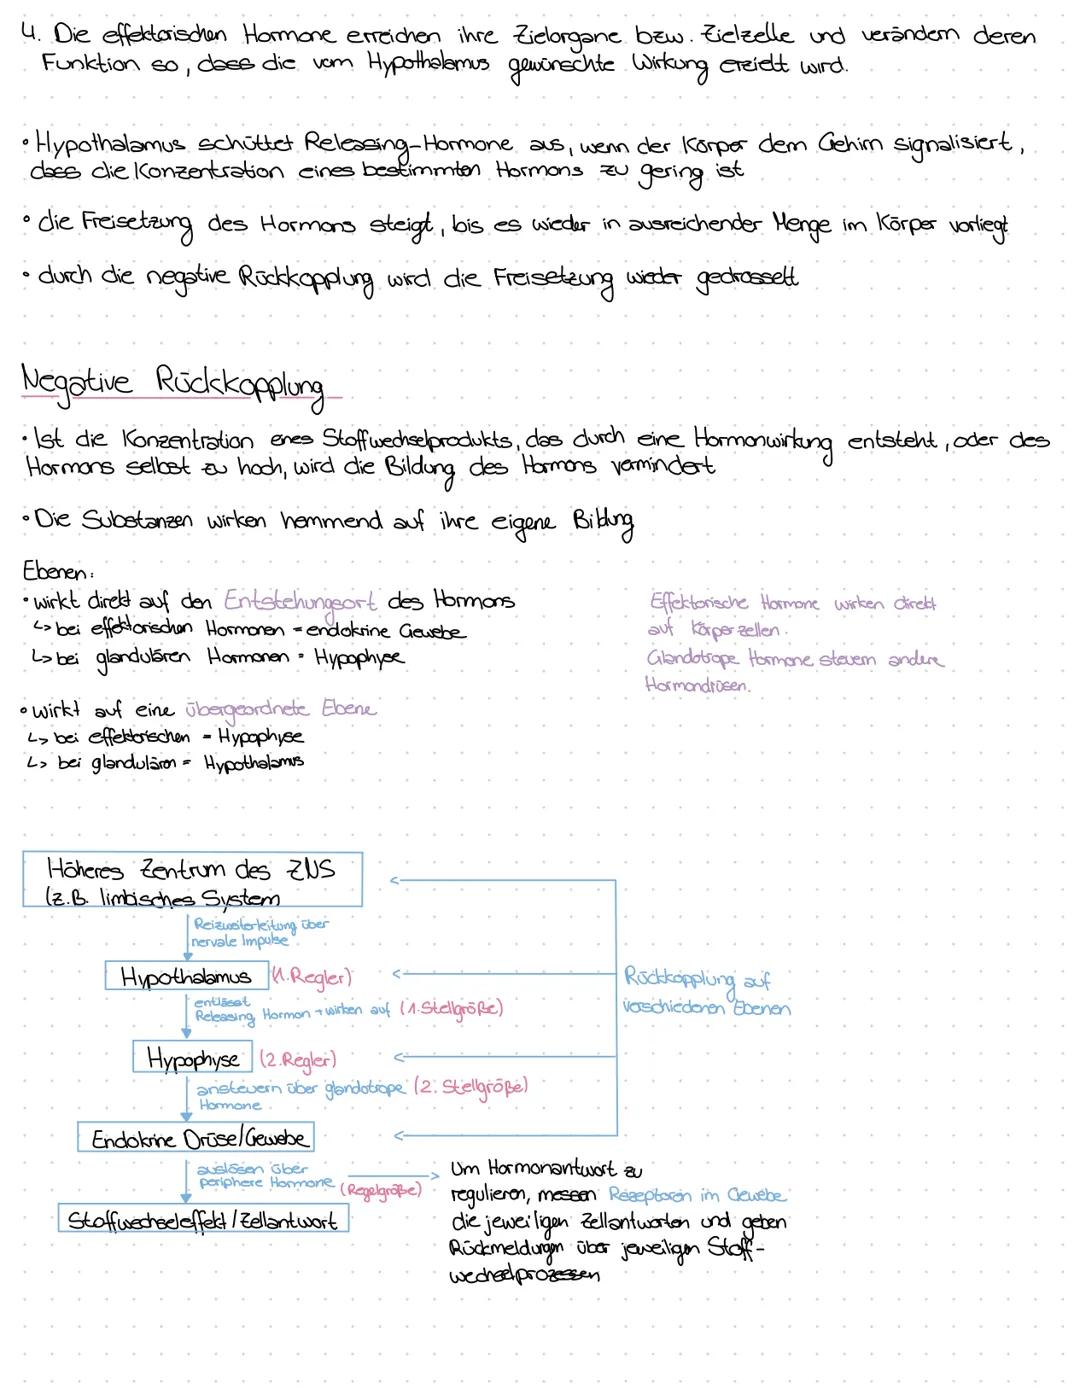 4. Die effektorischen Hormone erreichen ihre Zielorgane bzw. Zielzelle und verändern deren
Funktion so, dass die vom Hypothalamus gewünschte Wirkung erzielt wird.
• Hypothalamus schüttet Releasing-Hormone aus, wenn der Körper dem Gehirn signalisiert,
dass die Konzentration eines bestimmten Hormons zu gering ist
• die Freisetzung des Hormons steigt, bis es wieder in ausreichender Menge im Körper vorliegt
• durch die negative Rückkopplung wird die Freisetzung wieder gedrosselt
Negative Rückkopplung
• Ist die Konzentration enes Stoffwechselprodukts, das durch eine Hormonwirkung entsteht, oder des
Hormons selbst zu hoch, wird die Bildung des Hormons vermindert
• Die Substanzen wirken hemmend auf ihre eigene Bildung
Ebenen:
• wirkt direkt auf den Entstehungsort des Hormons
↳ bei effektorischen Hormonen = endokrine Gewebe
↳ bei glandulären Hormonen = Hypophyse
• wirkt auf eine übergeordnete Ebene
↳ bei effektorischen = Hypophyse
↳ bei glandulären = Hypothalamus
Effektorische Hormone wirken direkt
auf Körperzellen.
Glandotrope Hormone steuern andere
Hormondrüsen.
Höheres Zentrum des ZNS
(z.B. limbisches System
Reizweiterleitung über
nervale Impulse
Hypothalamus (1. Regler)
entlässt
Releasing Hormon → wirken auf (1. Stellgröße)
Hypophyse (2. Regler)
ansteuern über glandotrope (2. Stellgröße)
Hormone
Endokrine Drüse/Gewebe
auslösen über
periphere Hormone (Regelgröße)
Stoffwechseleffekt / Zellantwort
Rückkopplung auf
verschiedenen Ebenen
Um Hormonantwort zu
regulieren, messen Rezeptoren im Gewebe
die jeweiligen Zellantworten und geben
Rückmeldungen über jeweiligen Stoff-
wechselprozessen